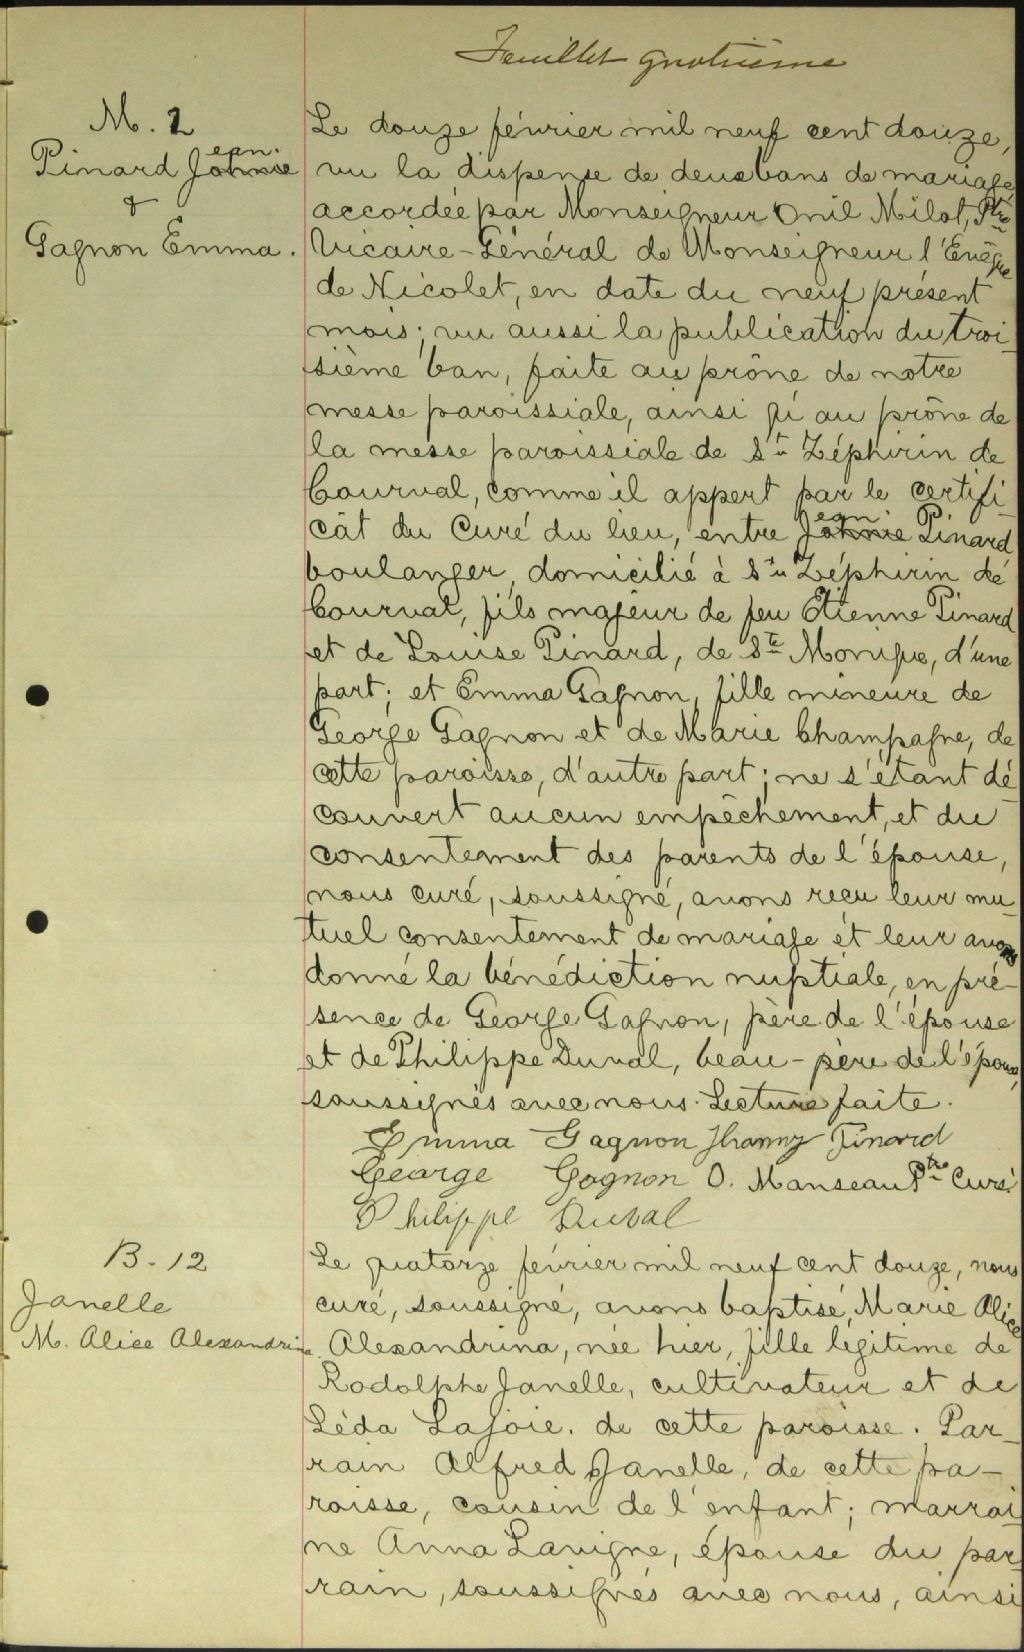 Feuillet quatrième
M. 2
Pinard Jean
Johnnie
&
Gagnon Emma.
Le douze février mil neuf cent douze,
vu la dispense de deux bans de mariage
accordée par Monseigneur Onil Milot, Ptre
Vicaire-Général de Monseigneur l'Evêque
de Nicolet, en date du neuf présent
mois; vu aussi la publication du troi-
sième ban, faite au prône de notre
messe paroissiale, ainsi qu'au prône de
la messe paroissiale de St Zéphirin de
Courval, comme il appert par le certifi-
cât du Curé du lieu, entre Jean Johnie Pinard
boulanger, domicilié à St Zéphirin de
Courval, fils majeur de feu Etienne Pinard
et de Louise Pinard, de Ste Monique, d'une
part; et Emma Gagnon, fille mineure de
George Gagnon et de Marie Champagne, de
cette paroisse, d'autre part; ne s'étant dé-
couvert aucun empêchement, et du
consentement des parents de l'épouse,
nous curé, soussigné, avons reçu leur mu-
tuel consentement de mariage et leur avons
donné la bénédiction nuptiale, en pré-
sence de George Gagnon, père de l'épouse
et de Philippe Duval, beau-père de l'époux,
soussignés avec nous. Lecture faite.
Emma Gagnon Jhanny Pinard
George Gagnon O. Manseau Ptre Curé
Philippe Duval
B. 12
Janelle
M. Alice Alexandrina
Le quatorze février mil neuf cent douze, nous
curé, soussigné, avons baptisé, Marie Alice
Alexandrina, née hier, fille legitime de
Rodolphe Janelle, cultivateur et de
Léda Lajoie, de cette paroisse. Par-
rain Alfred Janelle, de cette pa-
roisse, cousin de l'enfant; marrai-
ne Anna Lavigne, épouse du par-
rain, soussignés avec nous, ainsi